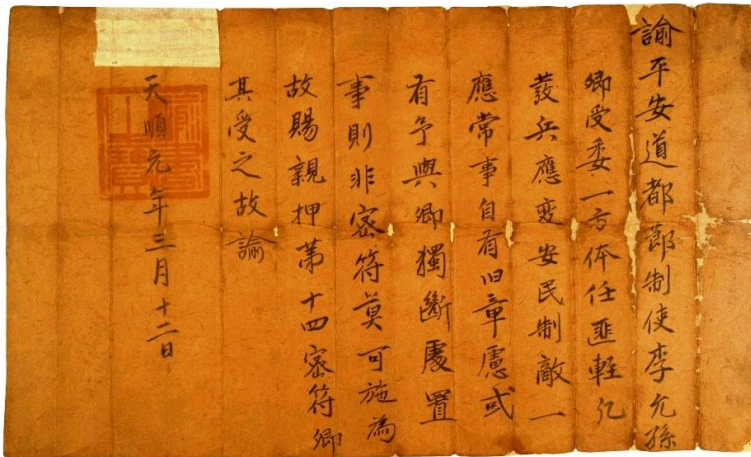 諭平安道都節制使李允孫
卿受委一方体任匪軽凡
發兵應変安民制敵一
應常事自有旧章慮或
有予與卿獨斷處置
事則非密符莫可施為
故賜親押第十四密符卿
其受之故諭
天順元年三月十二日
諭書之寶